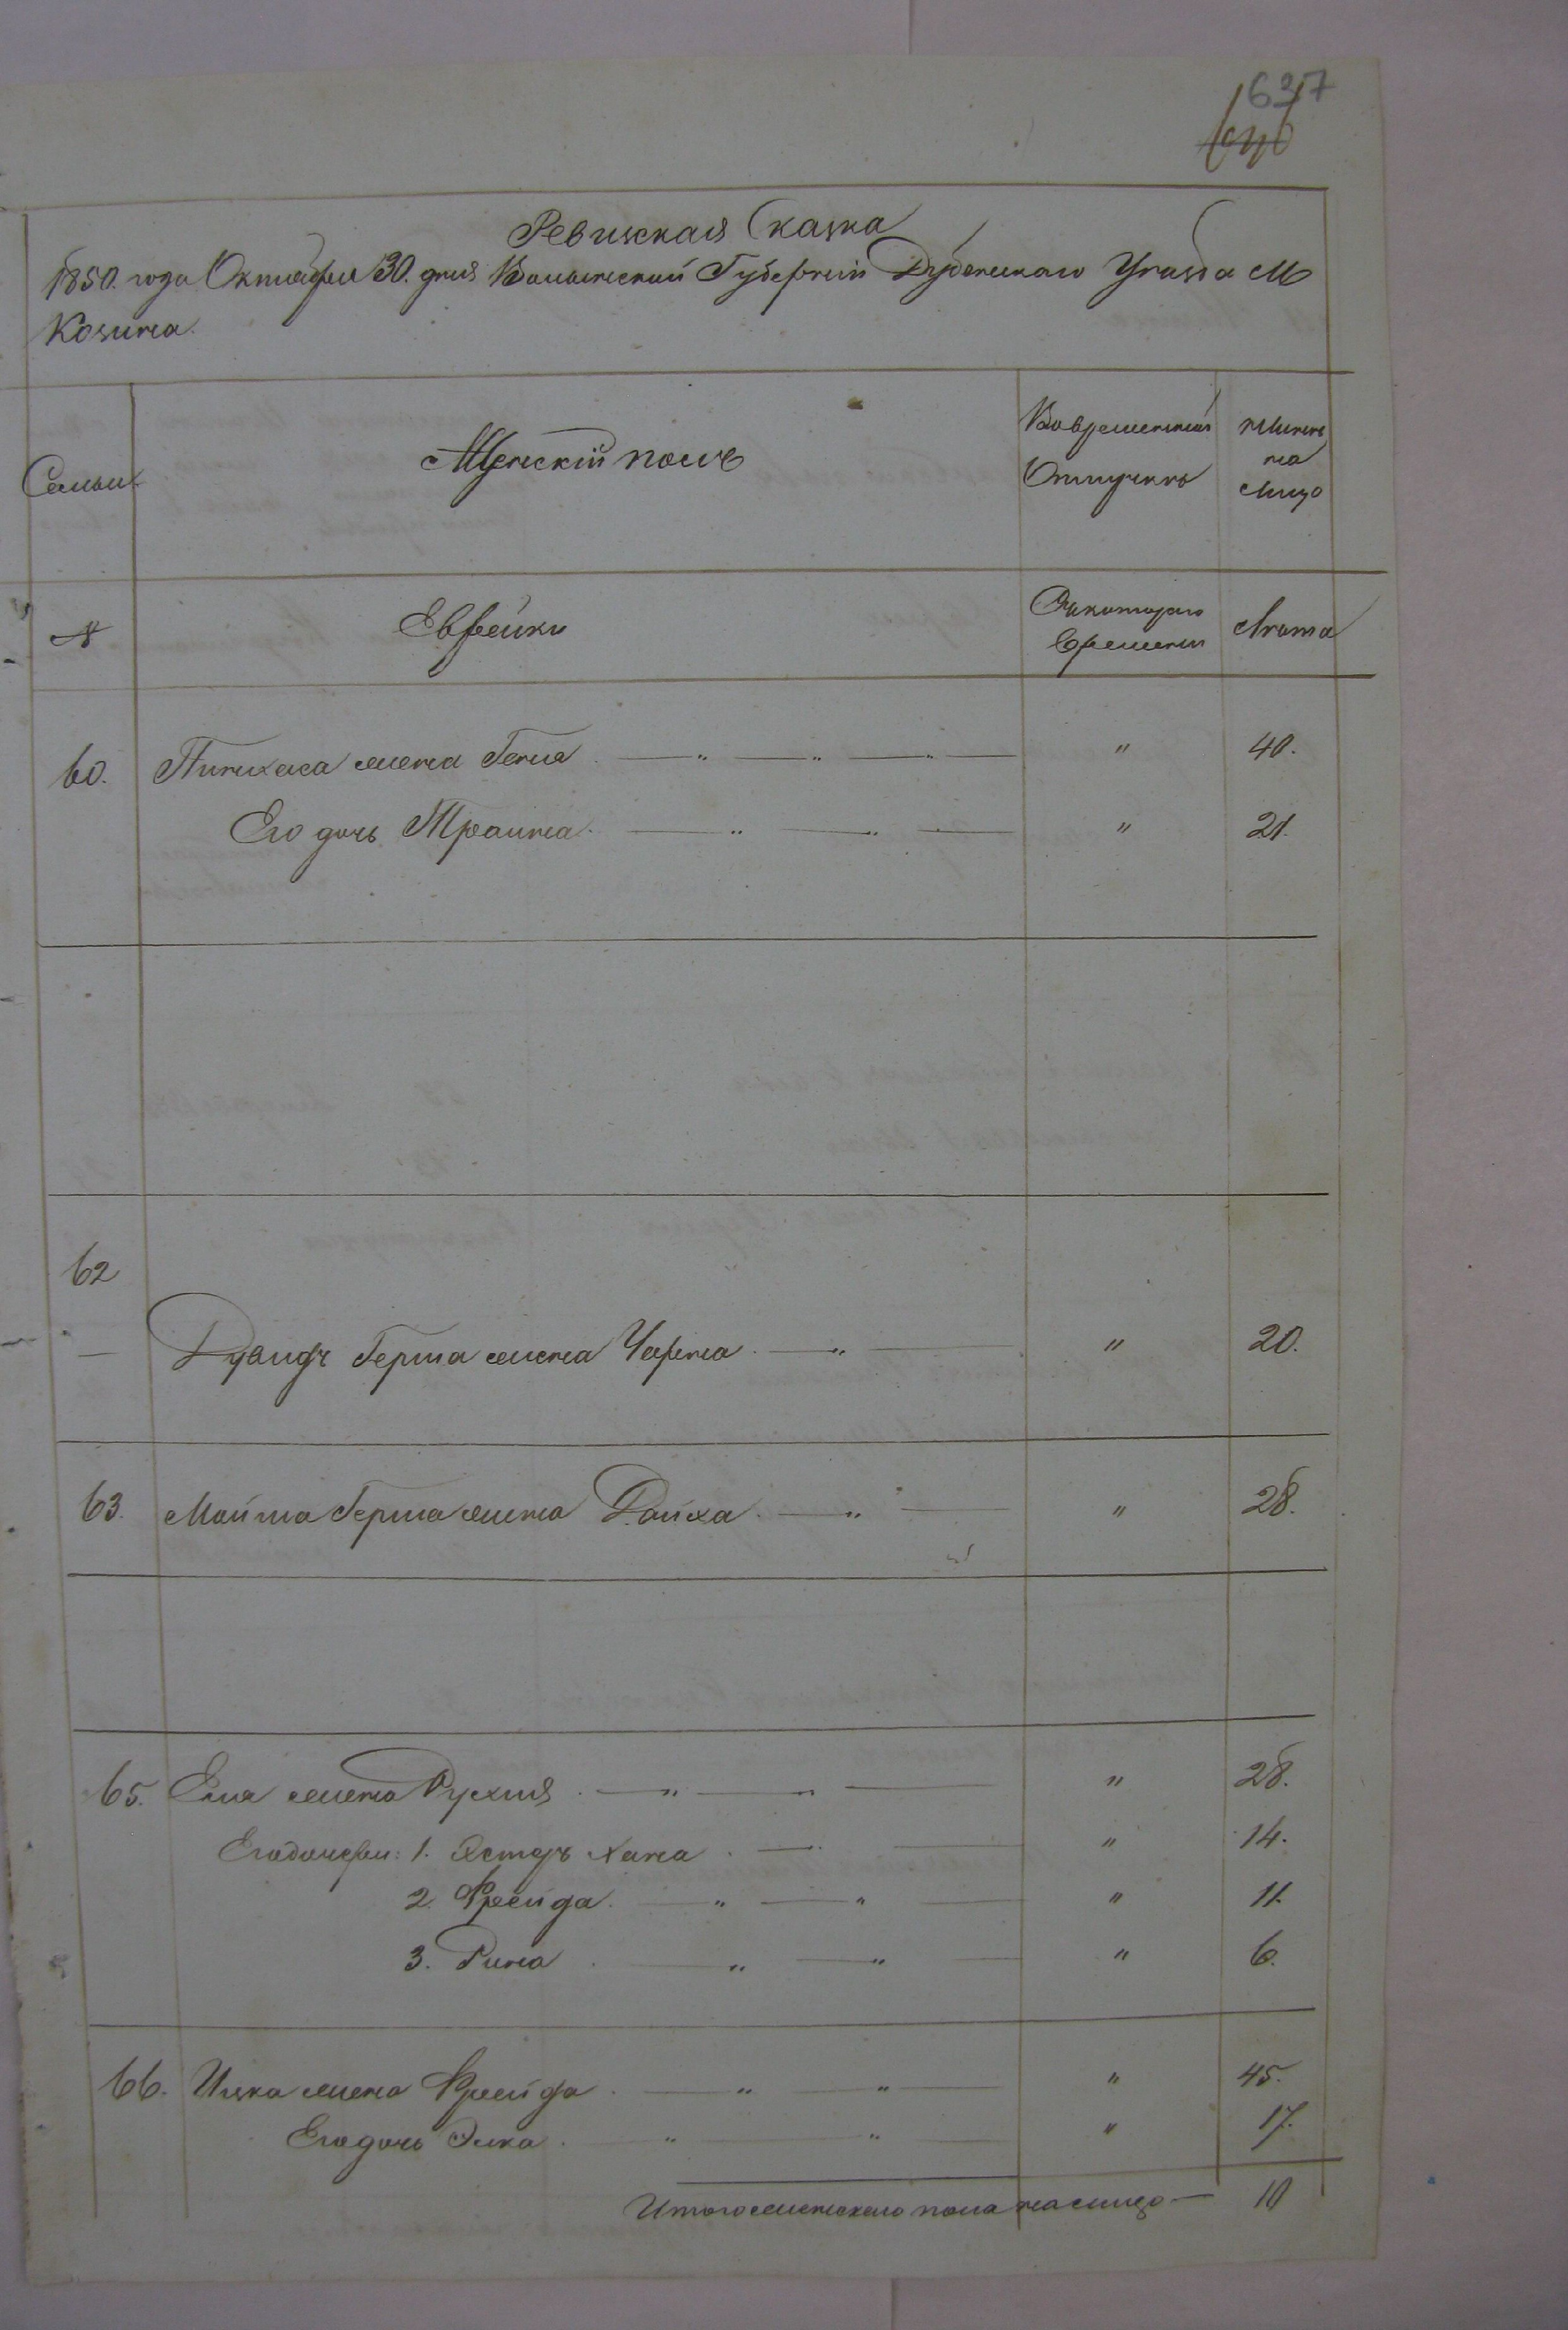 627
Ревизская Сказка
1850. года Октября 30. дня Волынской Губернiи Дубенского Уезда М
Козина.
Семьи
Женскiй полъ
Во временной
Отлучкѣ
нынѣ
на
лицо
N
Еврейки
Съ котораго
времени
Лѣта
60. Пинхаса жена Геня " 40.
Его дочь Траина. " 21.
62
Дувидъ Герша жена Чарна " 20.
63. Майша Герша жена Райха " 28.
65. Еля жена Рухля " 28.
Его дочери: 1. Эстеръ Хана " 14.
2. Фрейда. " 11.
3. Рина " 6.
66. Ицка жена Фрейда " 45.
Его дочь Элка " 17.
Итого женскаго пола на лицо — 10